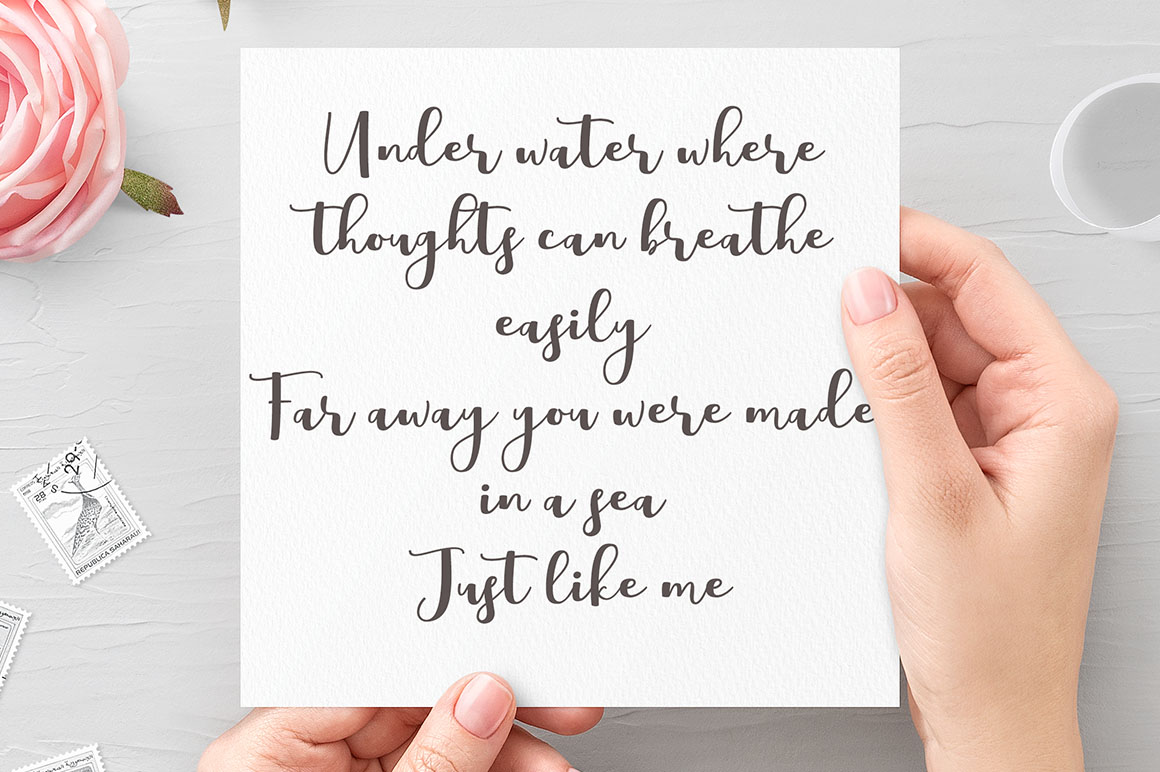 Under water where
thoughts can breathe
easily
Far away you were made
in a sea
Just like me
29
REPUBLICA SAHARAUI